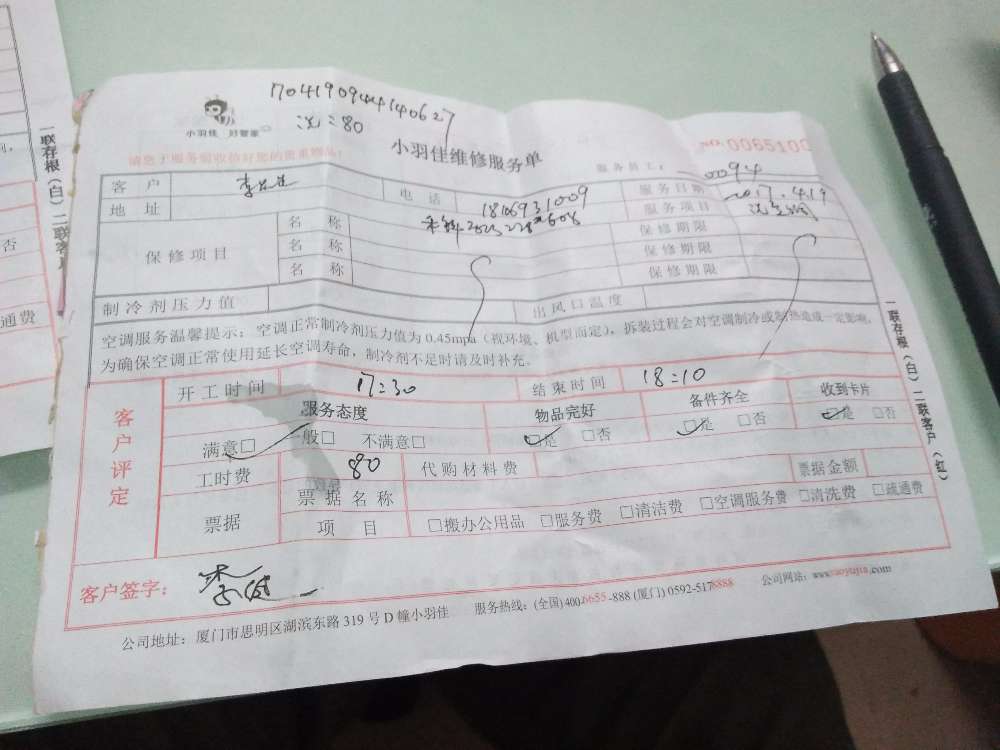 704190944140627
洗=80
小羽佳 好管家
小羽佳维修服务单
NO:0065100
请您于服务前收信好您的贵重物品!
服务员工: 0094
客户 电话 18106931009 服务日期 2017.4.19
地址 服务项目
保修项目 名称 保修期限
名称 保修期限
名称 保修期限
制冷剂压力值 出风口温度
空调服务温馨提示:空调正常制冷剂压力值为0.45mpa(视环境、机型而定),拆装过程会对空调制冷或制热造成一定影响,
为确保空调正常使用延长空调寿命,制冷剂不足时请及时补充。
客户评定
开工时间 17:30 结束时间 18:10
服务态度 物品完好 备件齐全 收到卡片
满意□ 一般□ 不满意□ □是 □否 □是 □否 □是 □否
工时费 80 代购材料费 票据金额
票据 票据名称
项目 □搬办公用品 □服务费 □清洁费 □空调服务费 □清洗费 □疏通费
客户签字:
公司地址:厦门市思明区湖滨东路319号D幢小羽佳 服务热线:(全国)400-6655-888 (厦门) 0592-5178888 公司网站:www.xiaoyujia.com
一联存根(白)二联客户(红)
一联存根(白)二联客户
否
通费